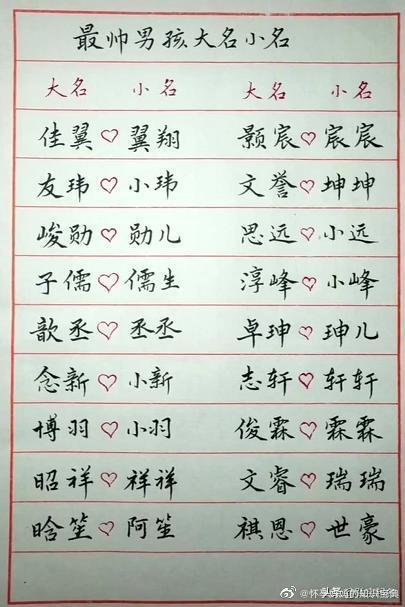 最帅男孩大名小名
大名 小名 大名 小名
佳翼♡翼翔 颢宸♡宸宸
友玮♡小玮 文誉♡坤坤
峻勋♡勋儿 思远♡小远
子儒♡儒生 淳峰♡小峰
歆丞♡丞丞 卓珅♡珅儿
念新♡小新 志轩♡轩轩
博羽♡小羽 俊霖♡霖霖
昭祥♡祥祥 文睿♡瑞瑞
晗笙♡阿笙 祺恩♡世豪